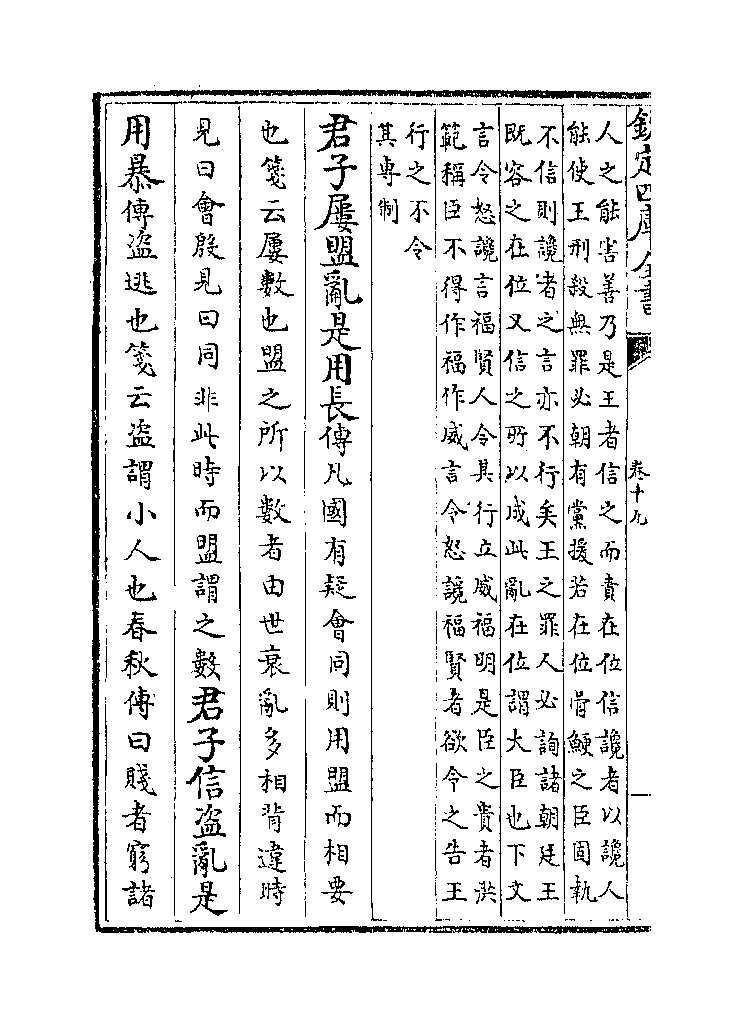 欽定四庫全書
卷十九
人之能害善乃是王者信之而責在位信讒者以讒人
能使王刑殺無罪必朝有黨援若在位骨鯁之臣固執
不信則讒者之言亦不行矣王之罪人必詢諸朝廷王
既容之在位又信之所以成此亂在位謂大臣也下文
言令怒讒言福賢人令其行立威福明是臣之貴者洪
範稱臣不得作福作威言令怒讒福賢者欲令之告王
行之不令
其專制
君子屢盟亂是用長傳凡國有疑會同則用盟而相要
也箋云屢數也盟之所以數者由世衰亂多相背違時
見曰會殷見曰同非此時而盟謂之數君子信盗亂是
用暴傳盗逃也箋云盗謂小人也春秋傳曰賤者窮諸